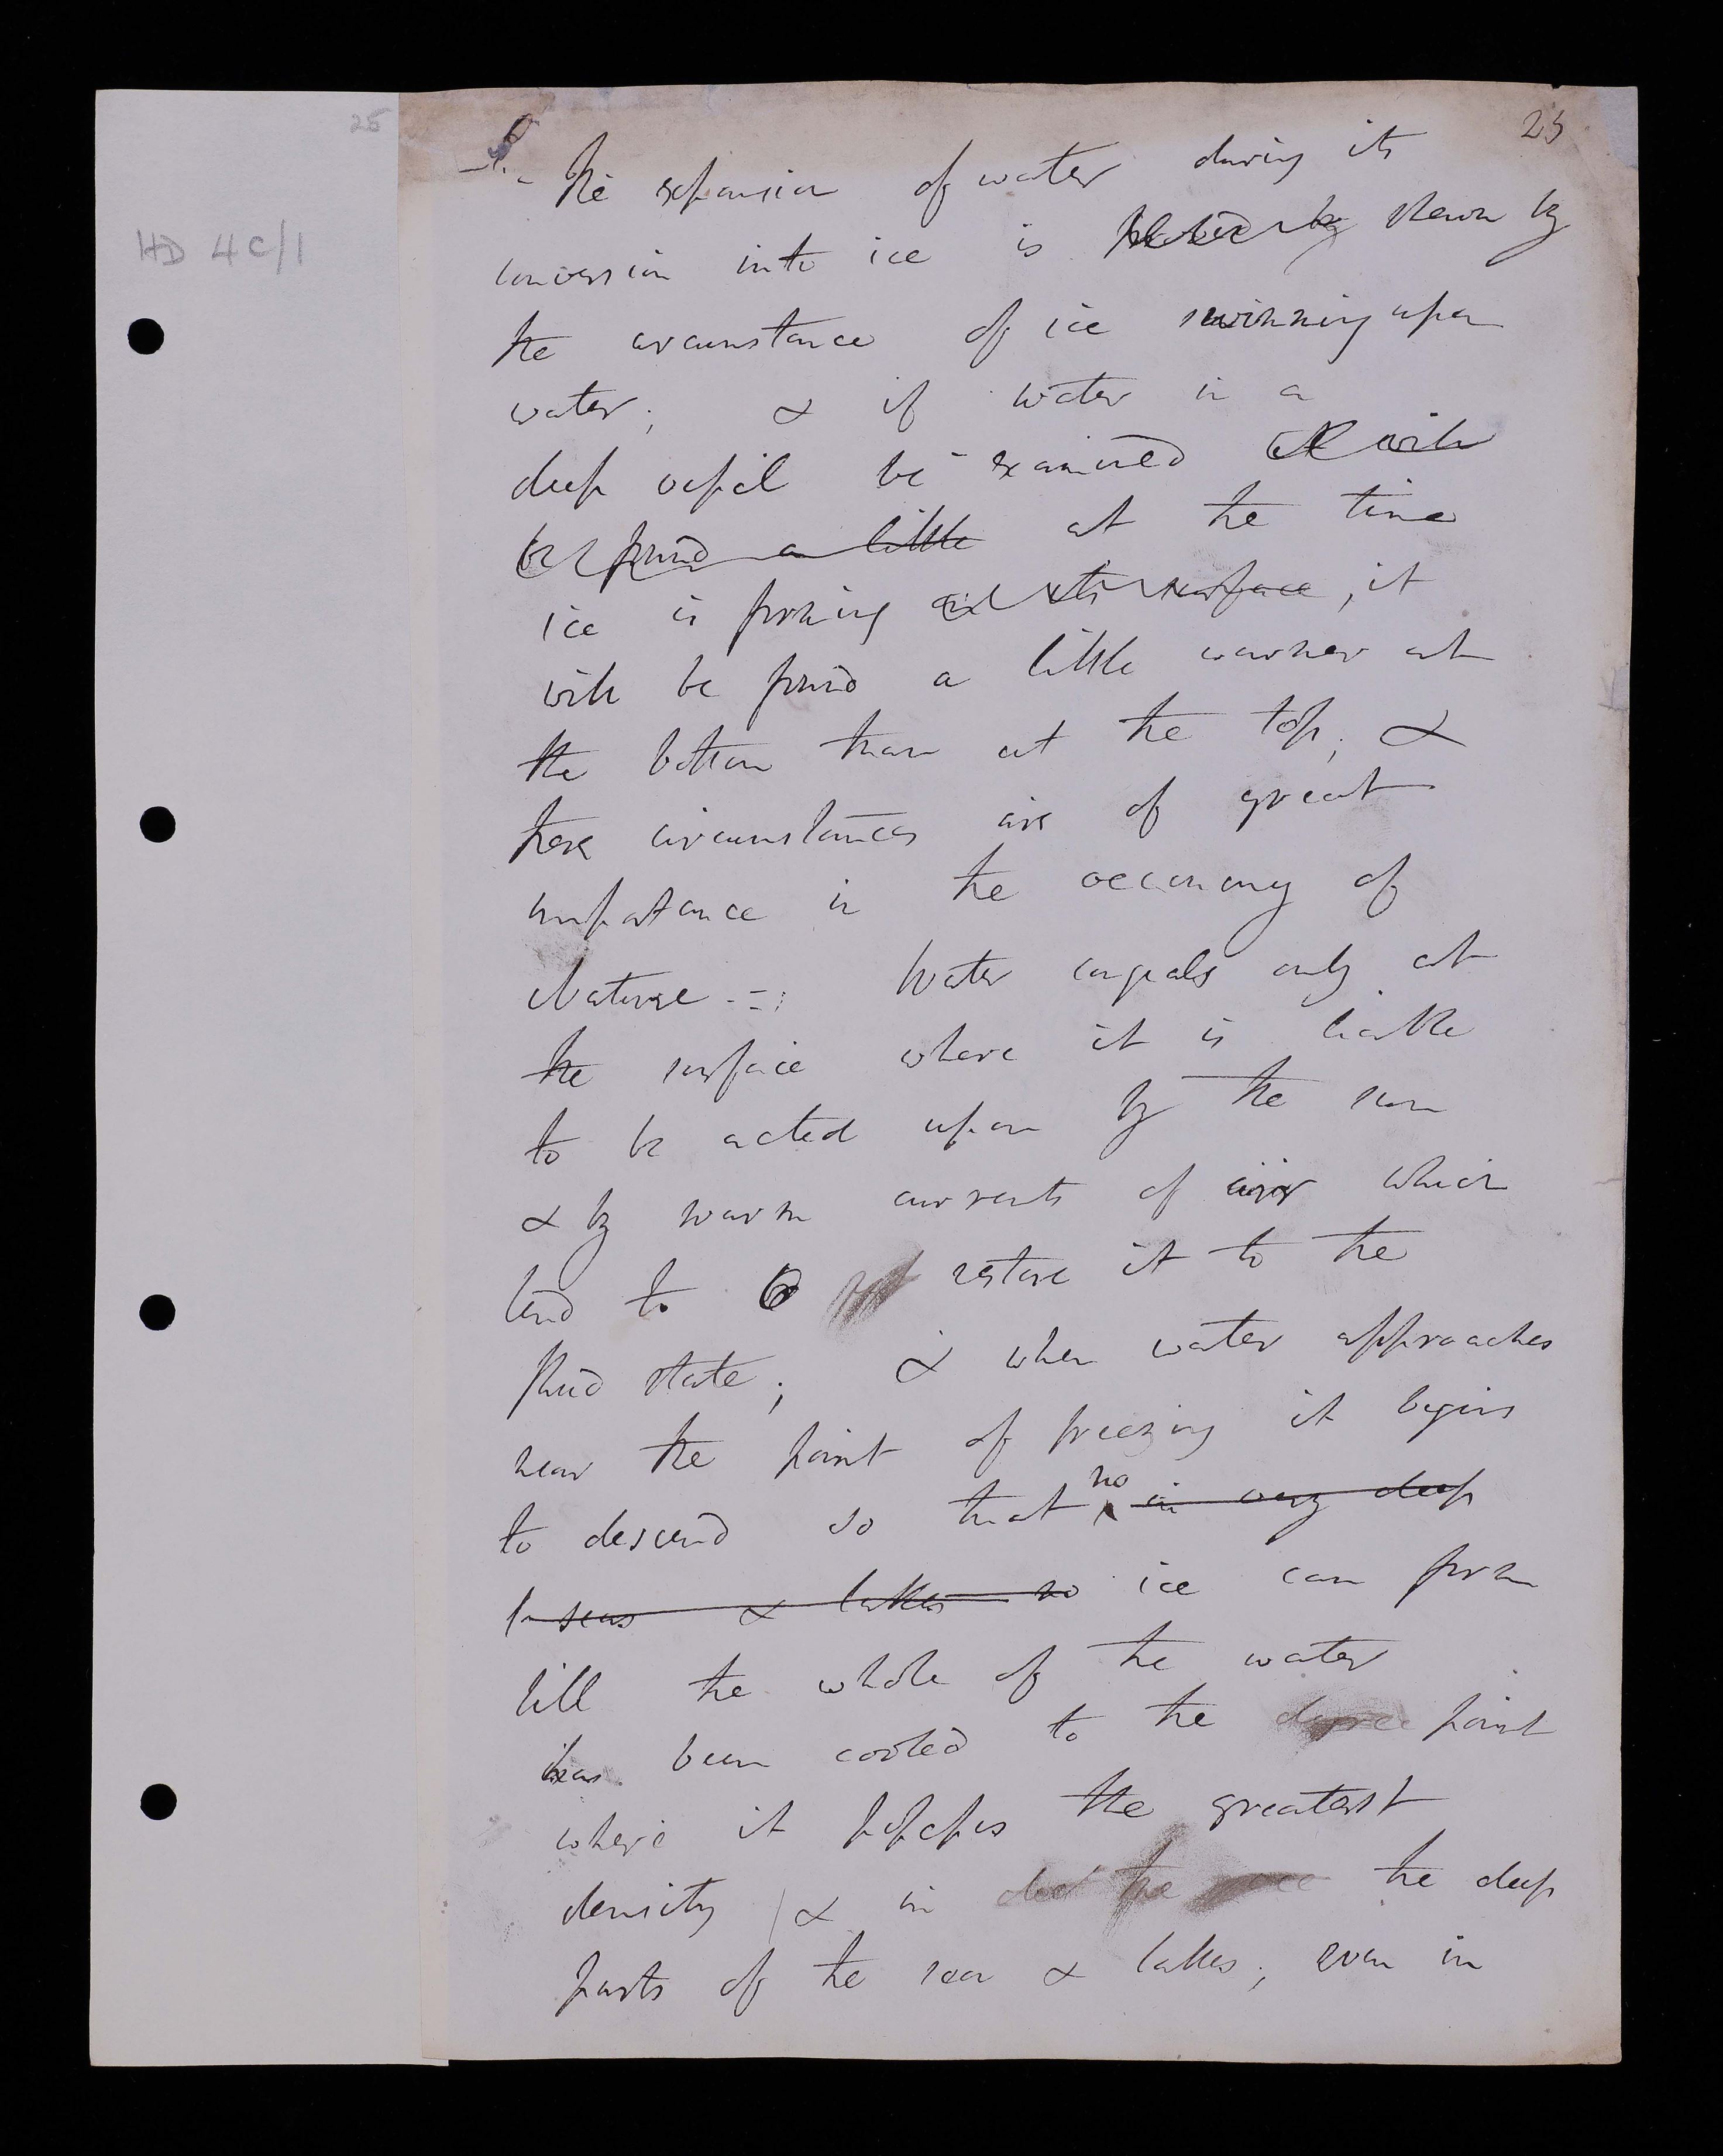 25
HD 4C/1
25
The expansion of water during its
conversion into ice is shewn by
the circumstance of ice swimming upon
water; & if water in a
deep vessel be examined it will
be found a little at the time
ice is forming on its surface, it
will be found a little warmer at
the bottom than at the top; & 
these circumstances are of great
importance in the oeconomy of
Nature -=; Water congeals only at
the surface where it is liable
to be acted upon by the sun
& by warm currents of air which
tend to restore it to the
fluid state; & when water approaches
near the point of freezing it begins
to descend so that no in very deep
seas & lakes no ice can form
till the whole of the water
has been cooled to the degree point
where it possesses the greatest
density & in the deep
parts of the sea & lakes; even in